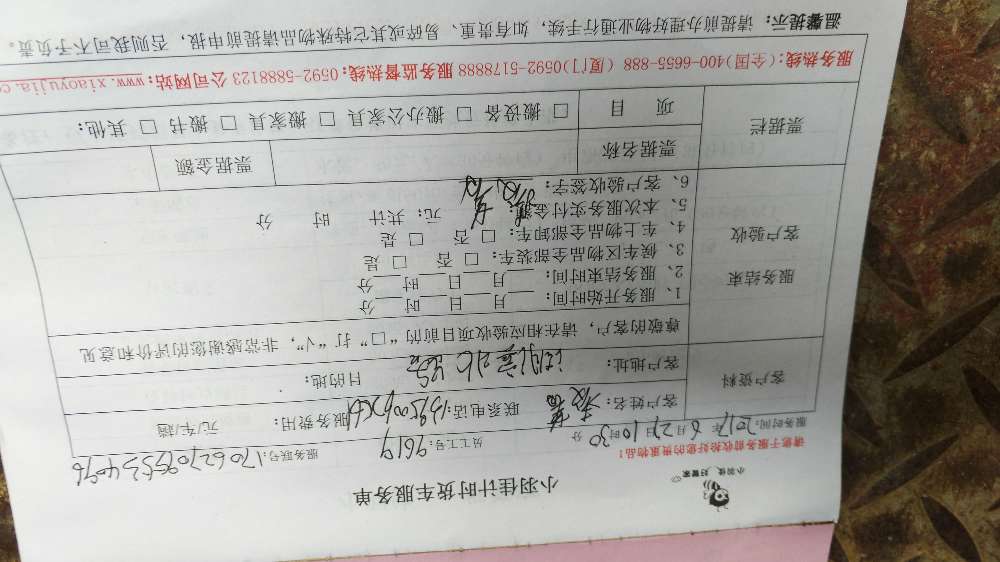 小羽佳 好管家
小羽佳计时货车服务单
请您于服务前收拾好您的贵重物品!
服务时间: 2017 年 6 月 27 日 10 时 30 分
员工号: 9619
服务联号:
客户资料
客户姓名:
联系电话:
服务费用: 元/车趟
客户地址:
目的地:
尊敬的客户, 请在相应验收项目前的 “□” 打 “√”, 非常感谢您的评价和意见
服务结束
客户验收
1、服务开始时间: 月 日 时 分
2、服务结束时间: 月 日 时 分
3、候车区物品全部装车: □ 否 □ 是
4、车上物品全部卸车: □ 否 □ 是
5、本次服务实付金额: 元; 共计 时 分
6、客户验收签字:
票据栏
票据名称
票据金额
项 目
□ 搬设备 □ 搬办公家具 □ 搬家具 □ 搬书 □ 其他:
服务热线: (全国)400-6655-888 (厦门)0592-5178888 服务监督热线: 0592-5888123 公司网站: www.xiaoyujia.co
温馨提示: 请提前办理好物业通行手续, 如有贵重、易碎或其它特殊物品请提前申报, 否则我司不予负责。